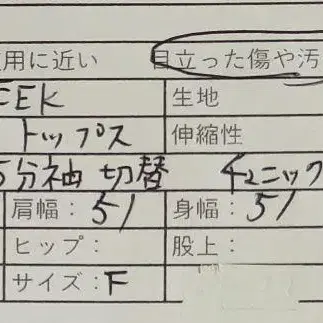 用に近い 目立った傷や汚
EEK 生地
トップス 伸縮性
5分袖 切替 チュニック
肩幅：51 身幅：51
ヒップ： 股上：
サイズ：F